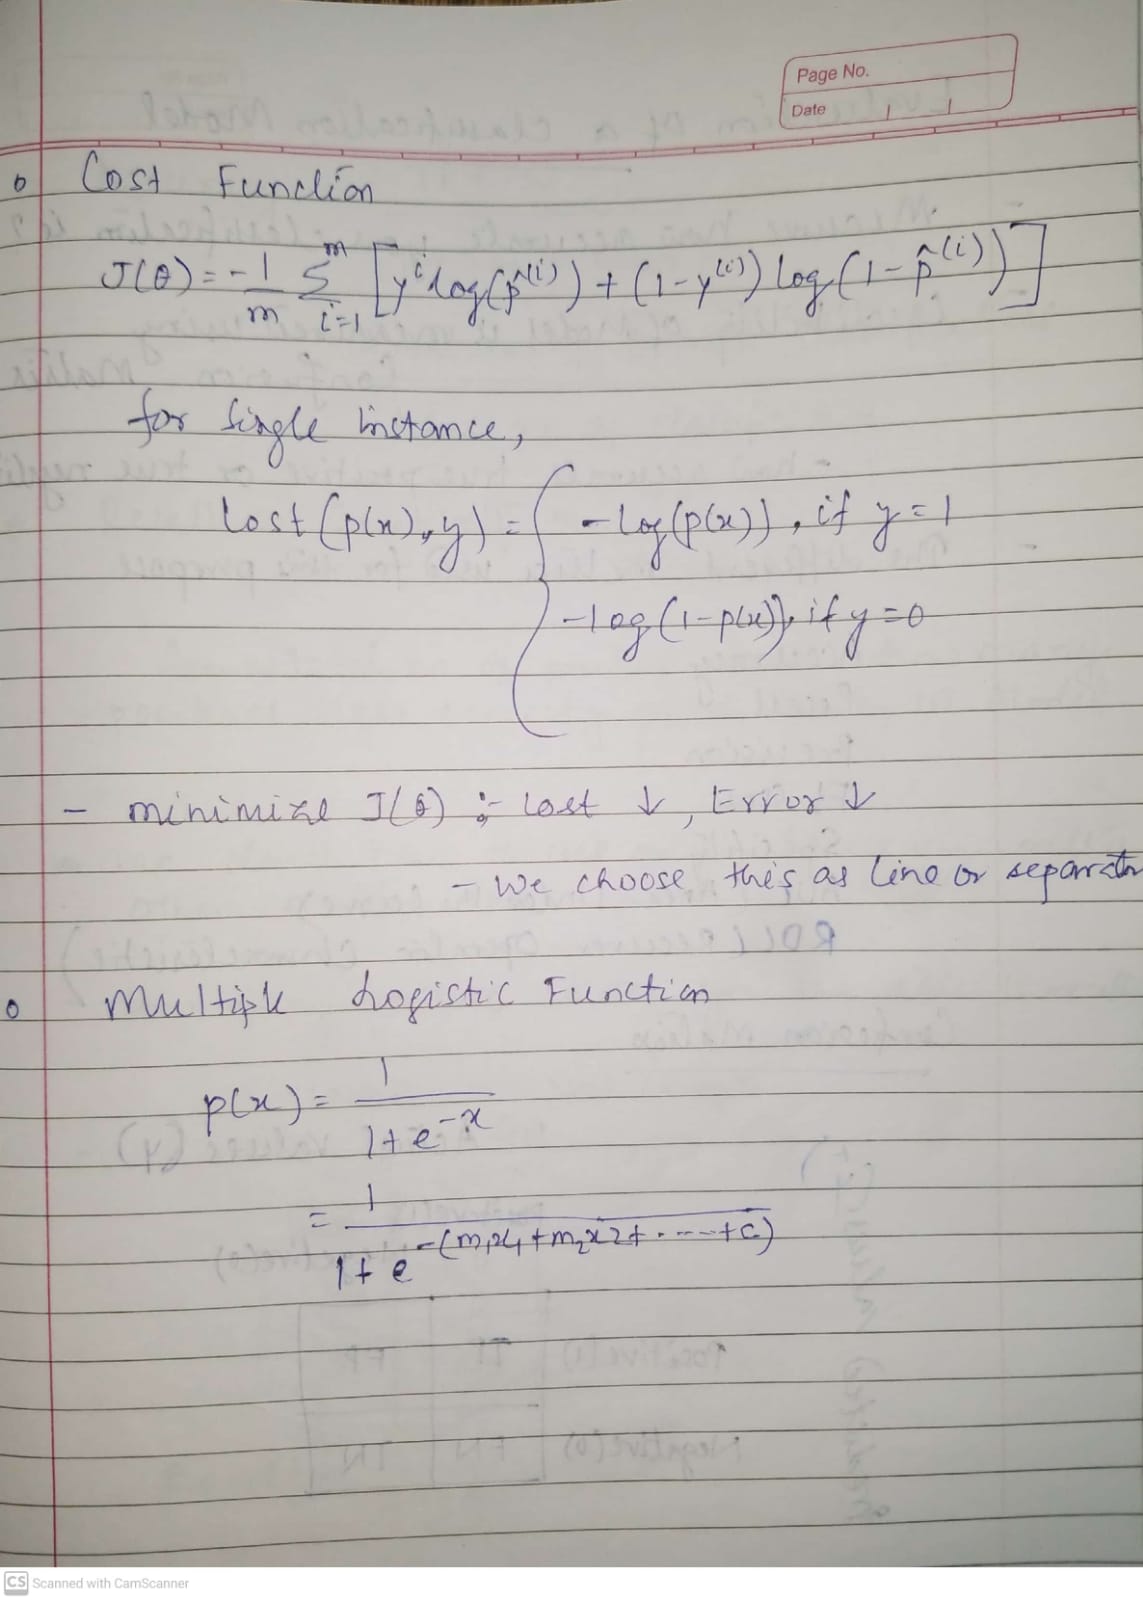 Page No.
Date / /
Cost Function
J(θ) = -1/m Σ_{i=1}^{m} [y^i log(p̂^(i)) + (1-y^(i)) log(1-p̂^(i))]
for single instance,
Cost (p(x), y) = { -log(p(x)), if y=1
-log(1-p(x)), if y=0
- minimize J(θ) :- Cost ↓, Error ↓
- We choose this as line or separator
Multiple Logistic Function
p(x) = 1/(1+e^-x)
= 1/(1+e^-(m₁x₁+m₂x2+.---+c))
CS Scanned with CamScanner